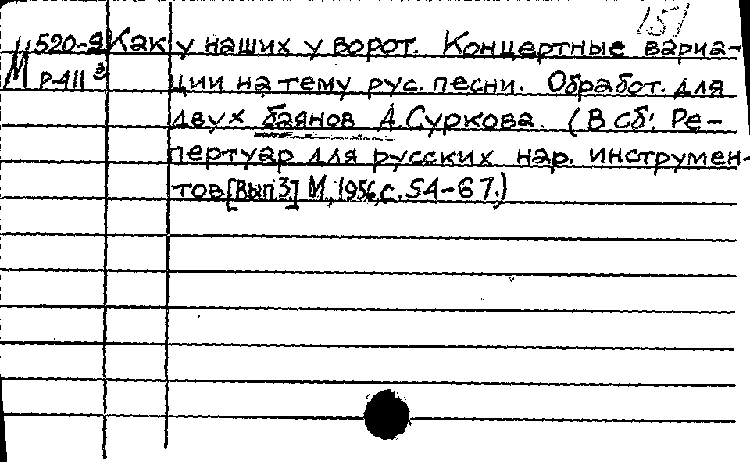 151
М 520-9 Как у наших у ворот. Концертные вариа-
Р-411 3 ции на тему рус. песни. Обработ. для
двух баянов А. Суркова. (В сб: Ре-
пертуар для русских нар. инструмен-
тов [Вып 3.] М., 1956, с. 54-67.)